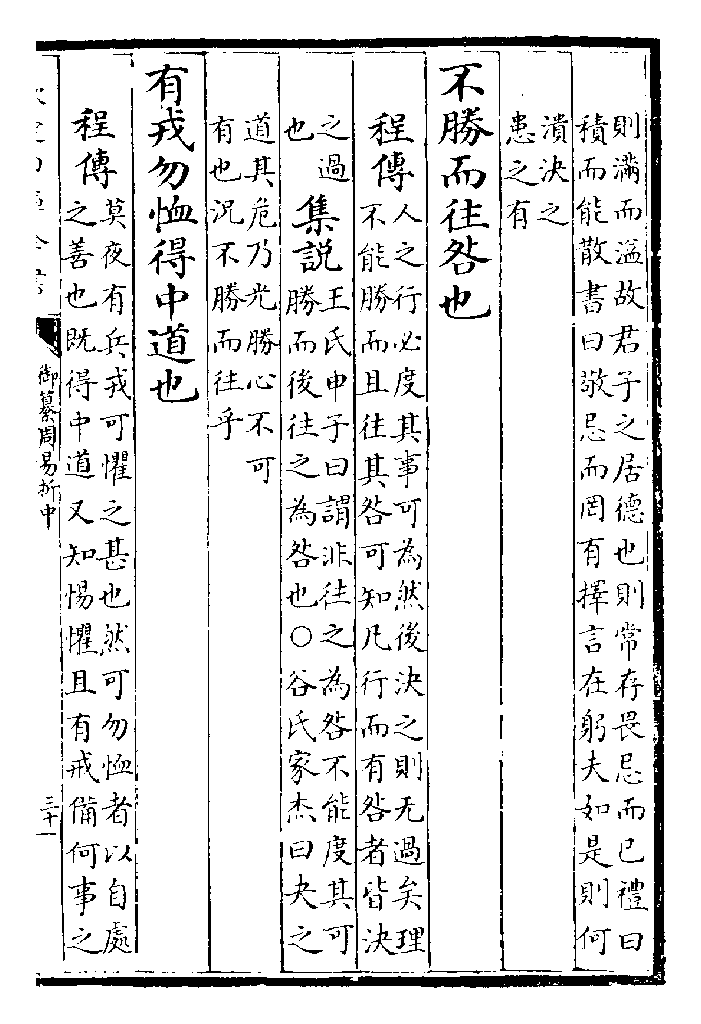 則滿而溢故君子之居德也則常存畏忌而已禮曰
積而能散書曰敬忌而罔有擇言在躬夫如是則何
潰決之
患之有
不勝而往咎也
程傳
人之行必度其事可為然後決之則无過矣理
不能勝而且往其咎可知凡行而有咎者皆決
之過
也
集説
王氏申子曰謂非往之為咎不能度其可
勝而後往之為咎也○谷氏家杰曰夬之
道其危乃光勝心不可
有也況不勝而往乎
有戎勿恤得中道也
程傳
莫夜有兵戎可懼之甚也然可勿恤者以自處
之善也既得中道又知惕懼且有戒備何事之
御纂周易折中
三十一